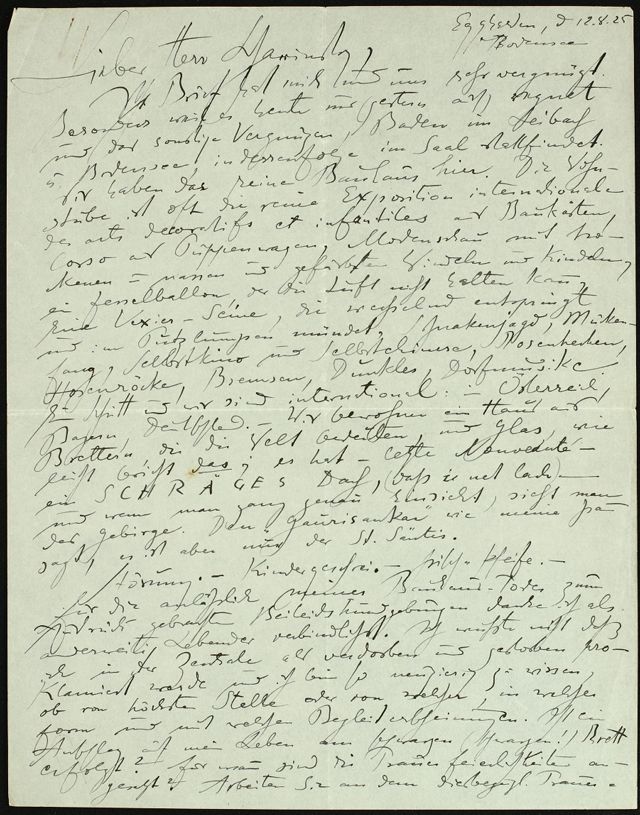 d 12.8.25
Bodensee
Lieber Herr
Ihr Brief hat mich und uns sehr vergnügt.
Besonders weil es heute und gestern regnet
und das sonstige Vergnügen, Baden im
u. Bodensee, infolge im Saal stattfindet.
Wir haben das reine Bauhaus hier. Die Wohn-
stube ist oft die reine Exposition internationale
des arts decoratifs et infantiles mit Baukästen,
Corso mit Puppenwagen, Modenschau mit tro-
ckenen = nassen und gefärbten Windeln und Kindern,
ein Fesselballon, der die Luft nicht halten kann,
Eine Vexier-Seine, die wechselnd entspringt
und im mündet, Schnakenjagd, Mücken-
fang, Selbstkino und
Hosenröcke, Bremsen, Dunkles, Dorfmusike.
Ein Schritt und wir sind international: in Österreich,
Bayern, Deutschld. – Wir bewohnen ein Haus aus
Brettern die die Welt bedeuten und Glas, wie
leicht bricht das; es hat – cette Nouveauté –
ein SCHRÄGES Dach, (dass ich net lach) –
und wenn man ganz genau hinsieht, sieht man
das Gebirge. Den Gaurisankar wie meine Frau
sagt, es ist aber nur der St. Säntis.
Störung. – Kindergeschrei. – frische Pfeife. –
Für die anlässlich meines Bauhaus-Todes zum
Ausdruck gebrachten Beileidskundgebungen danke ich als
anderweitig Lebender verbindlichst. Ich wusste nicht dass
ich in der Zentrale als verdorben und gestorben pro-
klamiert wurde und ich bin so neugierig zu wissen,
ob von höchster Stelle oder von welcher, in welcher
Form und mit welchen Begleiterscheinungen. Ist ein
Anschlag auf mein Leben am schwarzen (schwarzen!) Brett
erfolgt? Für wann sind die Trauerfeierlichkeiten an-
gesetzt? Arbeiten Sie an dem diesbezügl. Trauer-